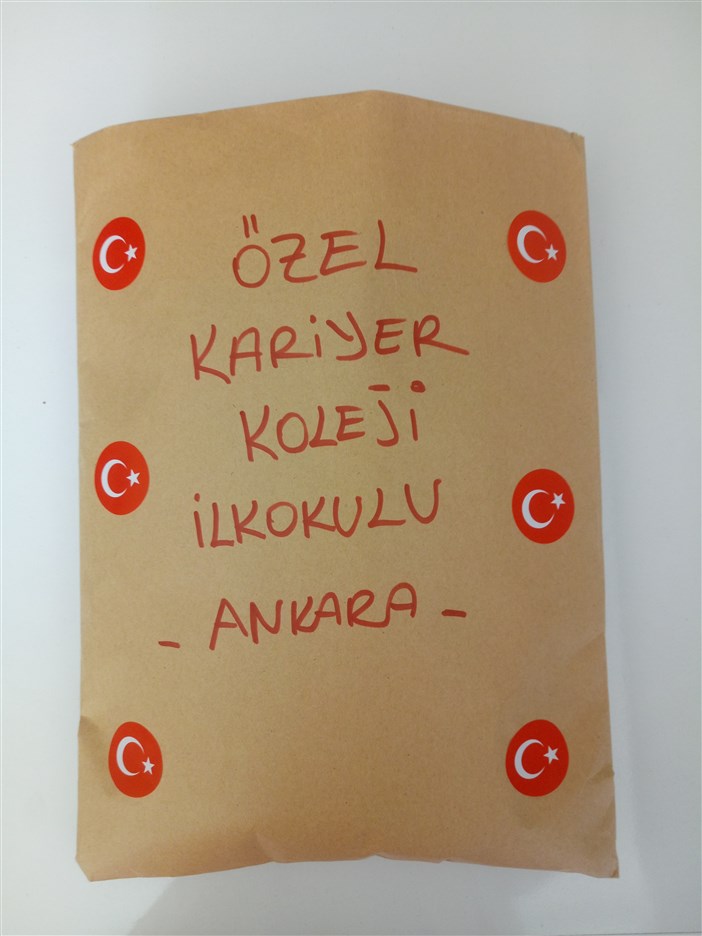 ÖZEL
KARİYER
KOLEJİ
İLKOKULU
- ANKARA -